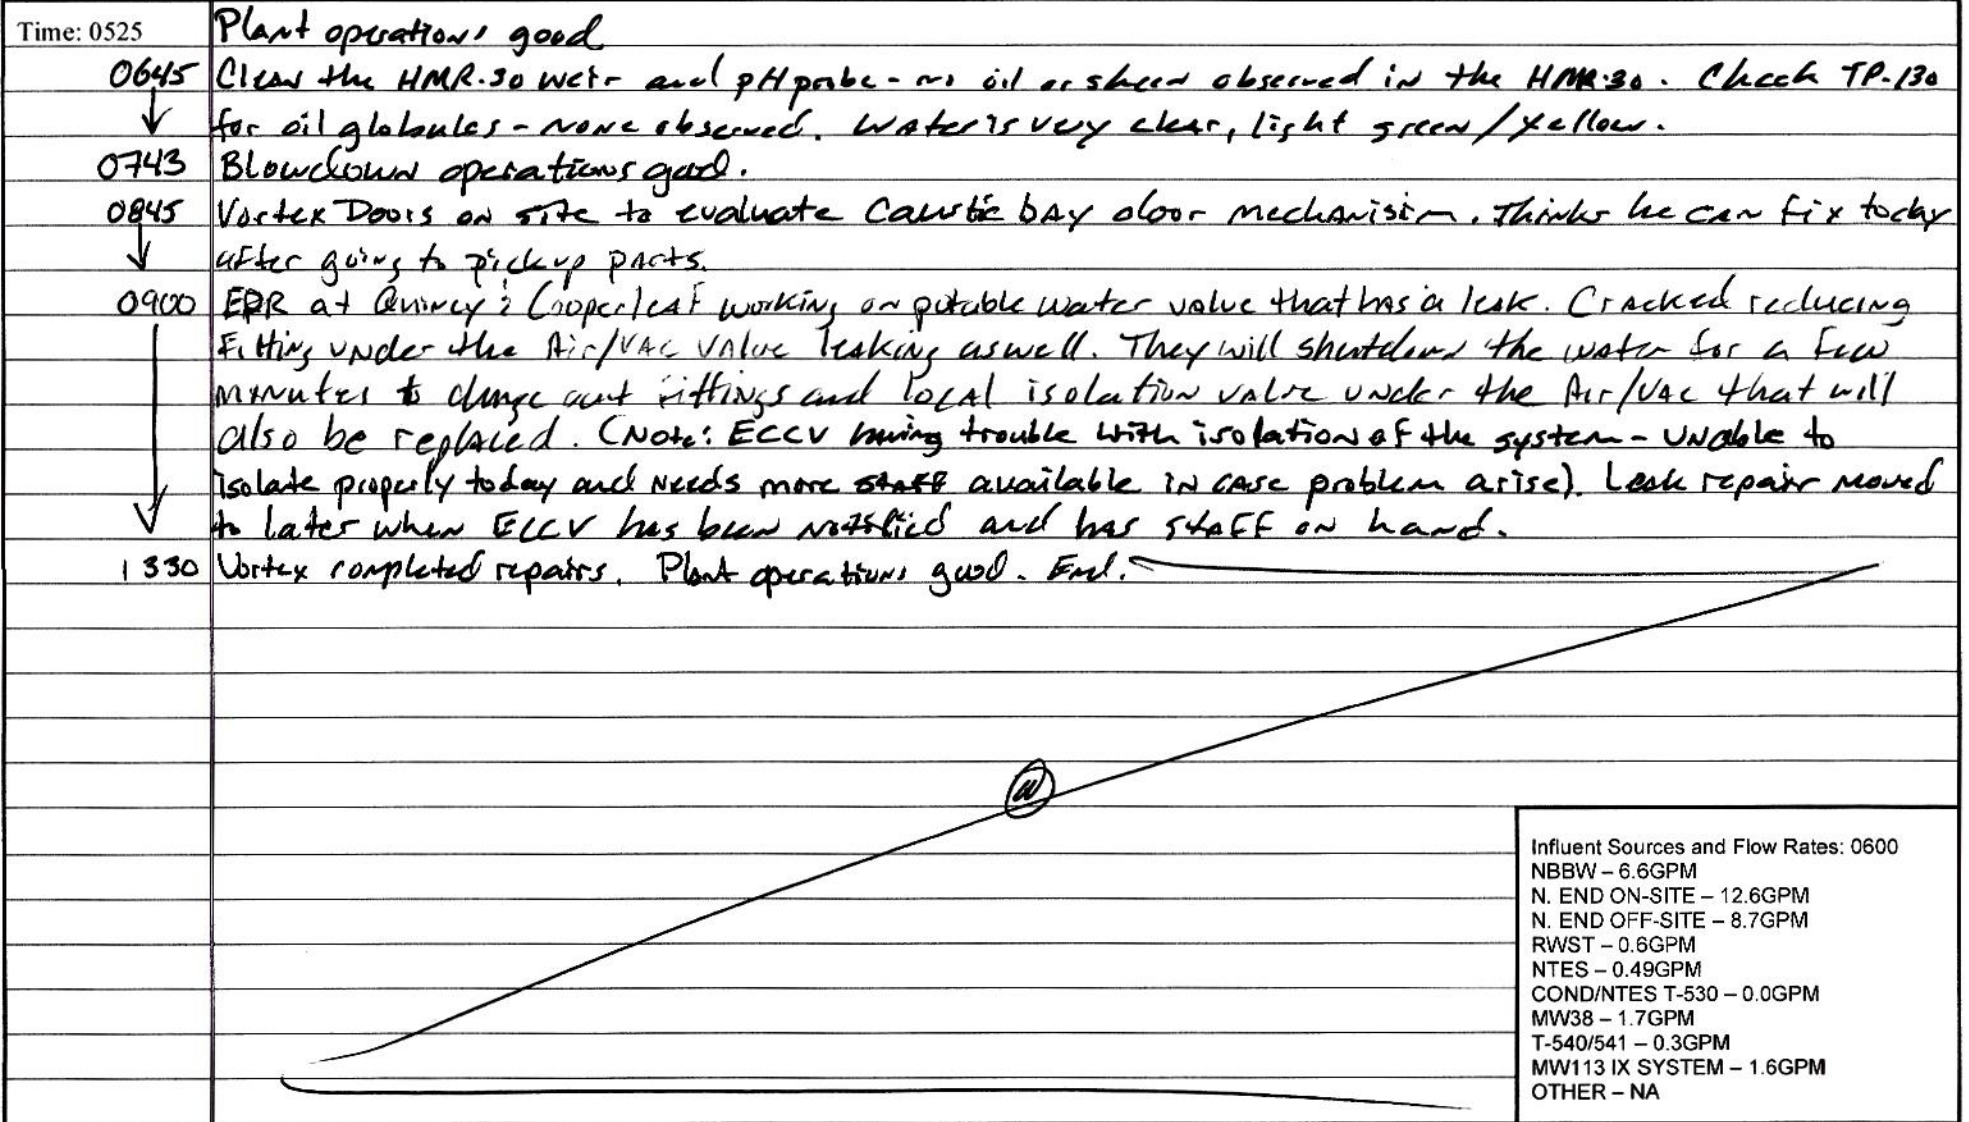 Time: 0525 Plant operations good
0645 Clean the HMR-30 weir and pH probe - no oil or sheen observed in the HMR-30. Check TP-130
for oil globules - none observed. Water is very clear, light green/yellow.
0743 Blowdown operations good.
0845 Vortex Doors on site to evaluate Caustic bay door mechanisim. Thinks he can fix today
after going to pickup parts.
0900 EPR at Quincy & Copperleaf working on potable water valve that has a leak. Cracked reducing
fitting under the Air/VAC valve leaking as well. They will shutdown the water for a few
minutes to change out fittings and local isolation valve under the Air/VAC that will
also be replaced. (Note: ECCV having trouble with isolation of the system - unable to
isolate properly today and needs more staff available in case problem arise). Leak repair moved
to later when ECCV has been notified and has staff on hand.
1330 Vortex completed repairs. Plant operations good. End.
Influent Sources and Flow Rates: 0600
NBBW – 6.6GPM
N. END ON-SITE – 12.6GPM
N. END OFF-SITE – 8.7GPM
RWST – 0.6GPM
NTES – 0.49GPM
COND/NTES T-530 – 0.0GPM
MW38 – 1.7GPM
T-540/541 – 0.3GPM
MW113 IX SYSTEM – 1.6GPM
OTHER – NA